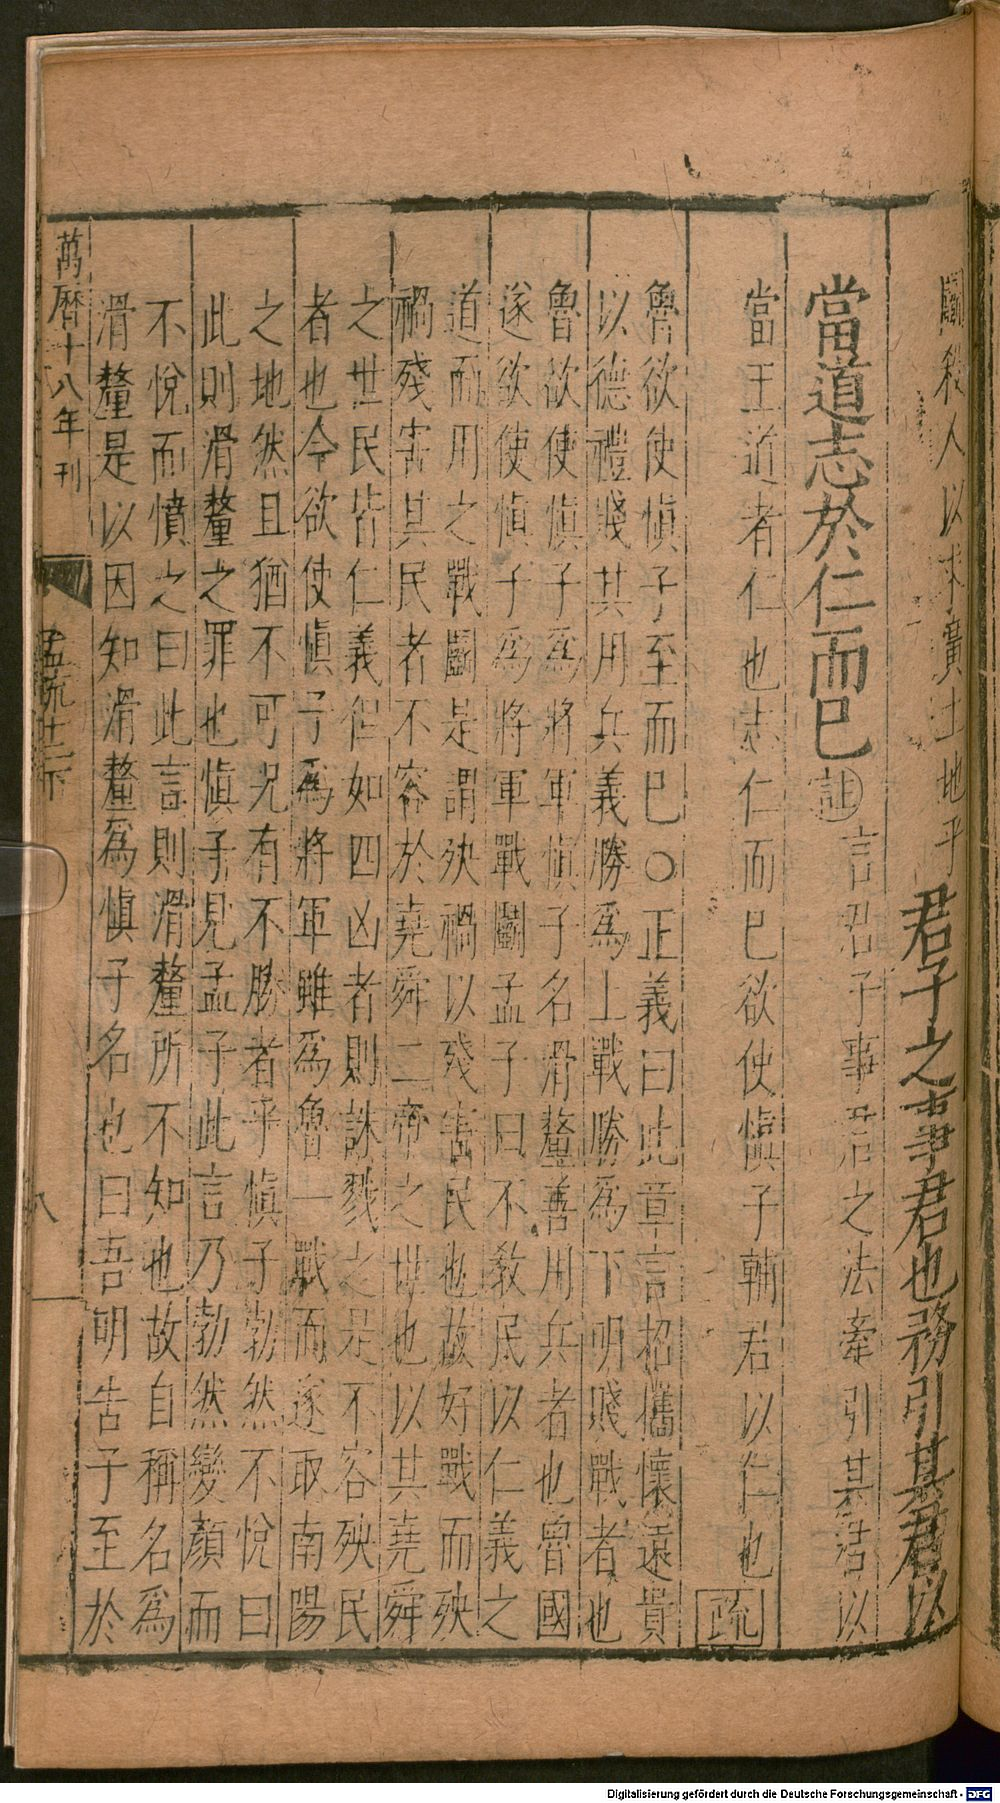 鬭殺人以求廣土地乎君子之事君也務引其君以
當道志於仁而巳註言君子事君之法牽引其君以
當王道者仁也志仁而巳欲使慎子輔君以仁也疏
魯欲使慎子至而巳○正義曰此章言招攜懷遠貴
以德禮賤其用兵義勝爲上戰勝爲下明賤戰者也
魯欲使慎子爲將軍慎子名滑釐善用兵者也魯國
遂欲使慎子爲將軍戰鬭孟子曰不敎民以仁義之
道而用之戰鬭是謂殃禍以殘害民也故好戰而殃
禍殘害其民者不容於堯舜二帝之世也以其堯舜
之世民皆仁義但如四凶者則誅戮之是不容殃民
者也今欲使慎子爲將軍雖爲魯一戰而遂取南陽
之地然且猶不可况有不勝者乎慎子勃然不悅曰
此則滑釐之罪也慎子見孟子此言乃勃然變顏而
不悅而憤之曰此言則滑釐所不知也故自稱名爲
滑釐是以因知滑釐爲慎子名也曰吾明告子至於
萬曆十八年刊
孟疏十二下
八
Digitalisierung gefördert durch die Deutsche Forschungsgemeinschaft - DFG